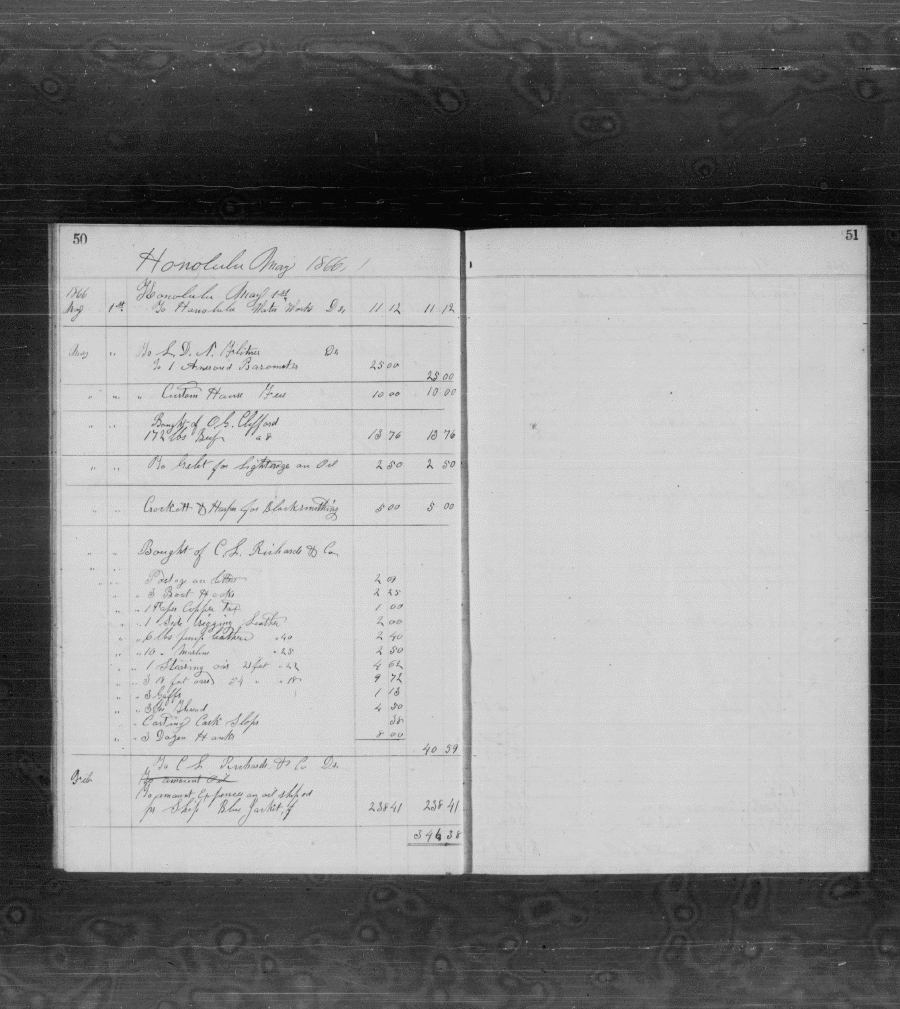 50
51
Honolulu May 1866
1866 Honolulu May 1st
May 1st To Honolulu Water Works Dr 11 12 11 12
May " To S. D. N. Dr
To 1 Aneroid Barometer 25 00
25 00
" " " Custom House Fees 10 00 10 00
" " Bought of O. G. Clifford
172 lbs Beef a 8 13 76 13 76
" " To for Lighterage on Oil 2 50 2 50
" " Crockett & for Blacksmithing 5 00 5 00
" " Bought of C. L. Richards & Co
" "
" " Postage on letters 2
" " 3 Boat Hooks 2 25
" " 1 Copper 1 00
" " 1 Side rigging Leather 2 00
" " 6 lbs pump leather " 40 2 40
" " 10 " Marline " 25 2 50
" " 1 Steering oar 21 fet " 22 4 62
" " 3 18 fet oars 54 " " 18 9 72
" " 3 Gaffs 1 13
" " 3 lbs 4 50
" " Carting Cask Slops 38
" " 3 Dozen Hanks 8 00
40 59
To C. L. Richards & Co Dr
To amount Oil
To amount Expences on oil shiped
pr Ship Blue Jacket 238 41 238 41
346 38